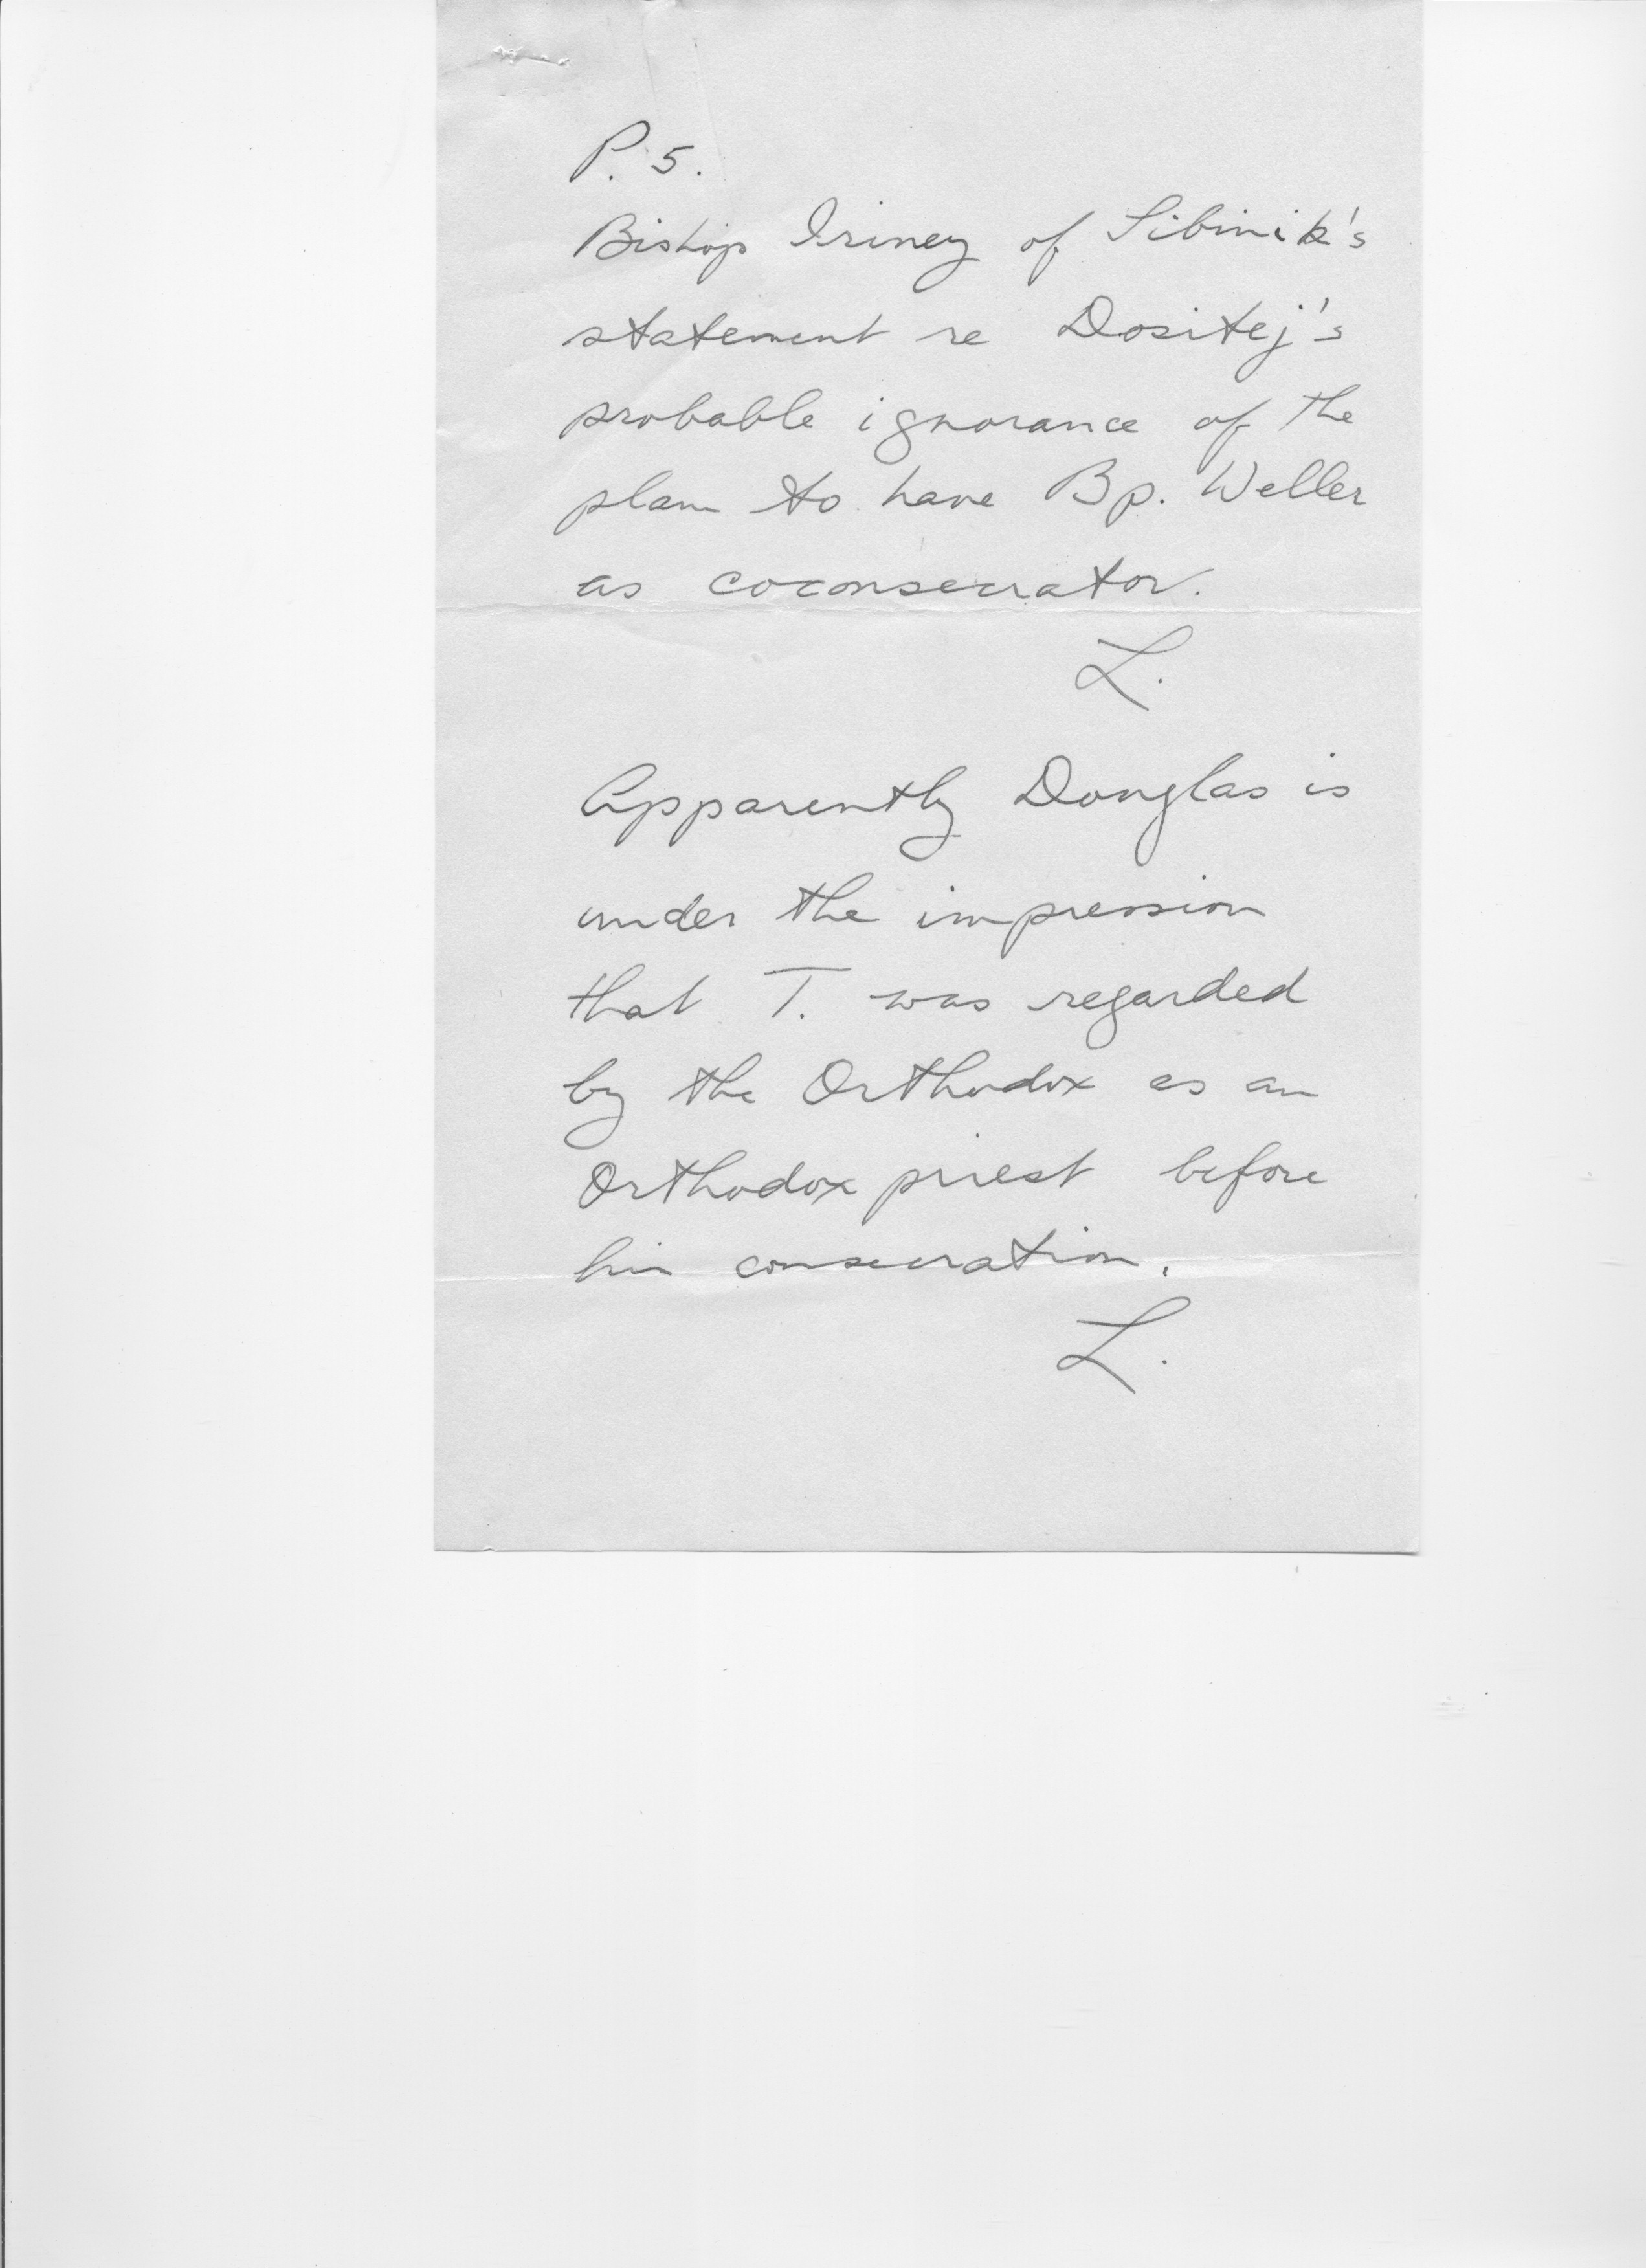 P. 5.
Bishop Iriney of Sibinik's
statement re Dositej's
probable ignorance of the
plan to have Bp. Weller
as coconsecrator.
L.
Apparently Douglas is
under the impression
that T. was regarded
by the Orthodox as an
Orthodox priest before
his consecration.
L.